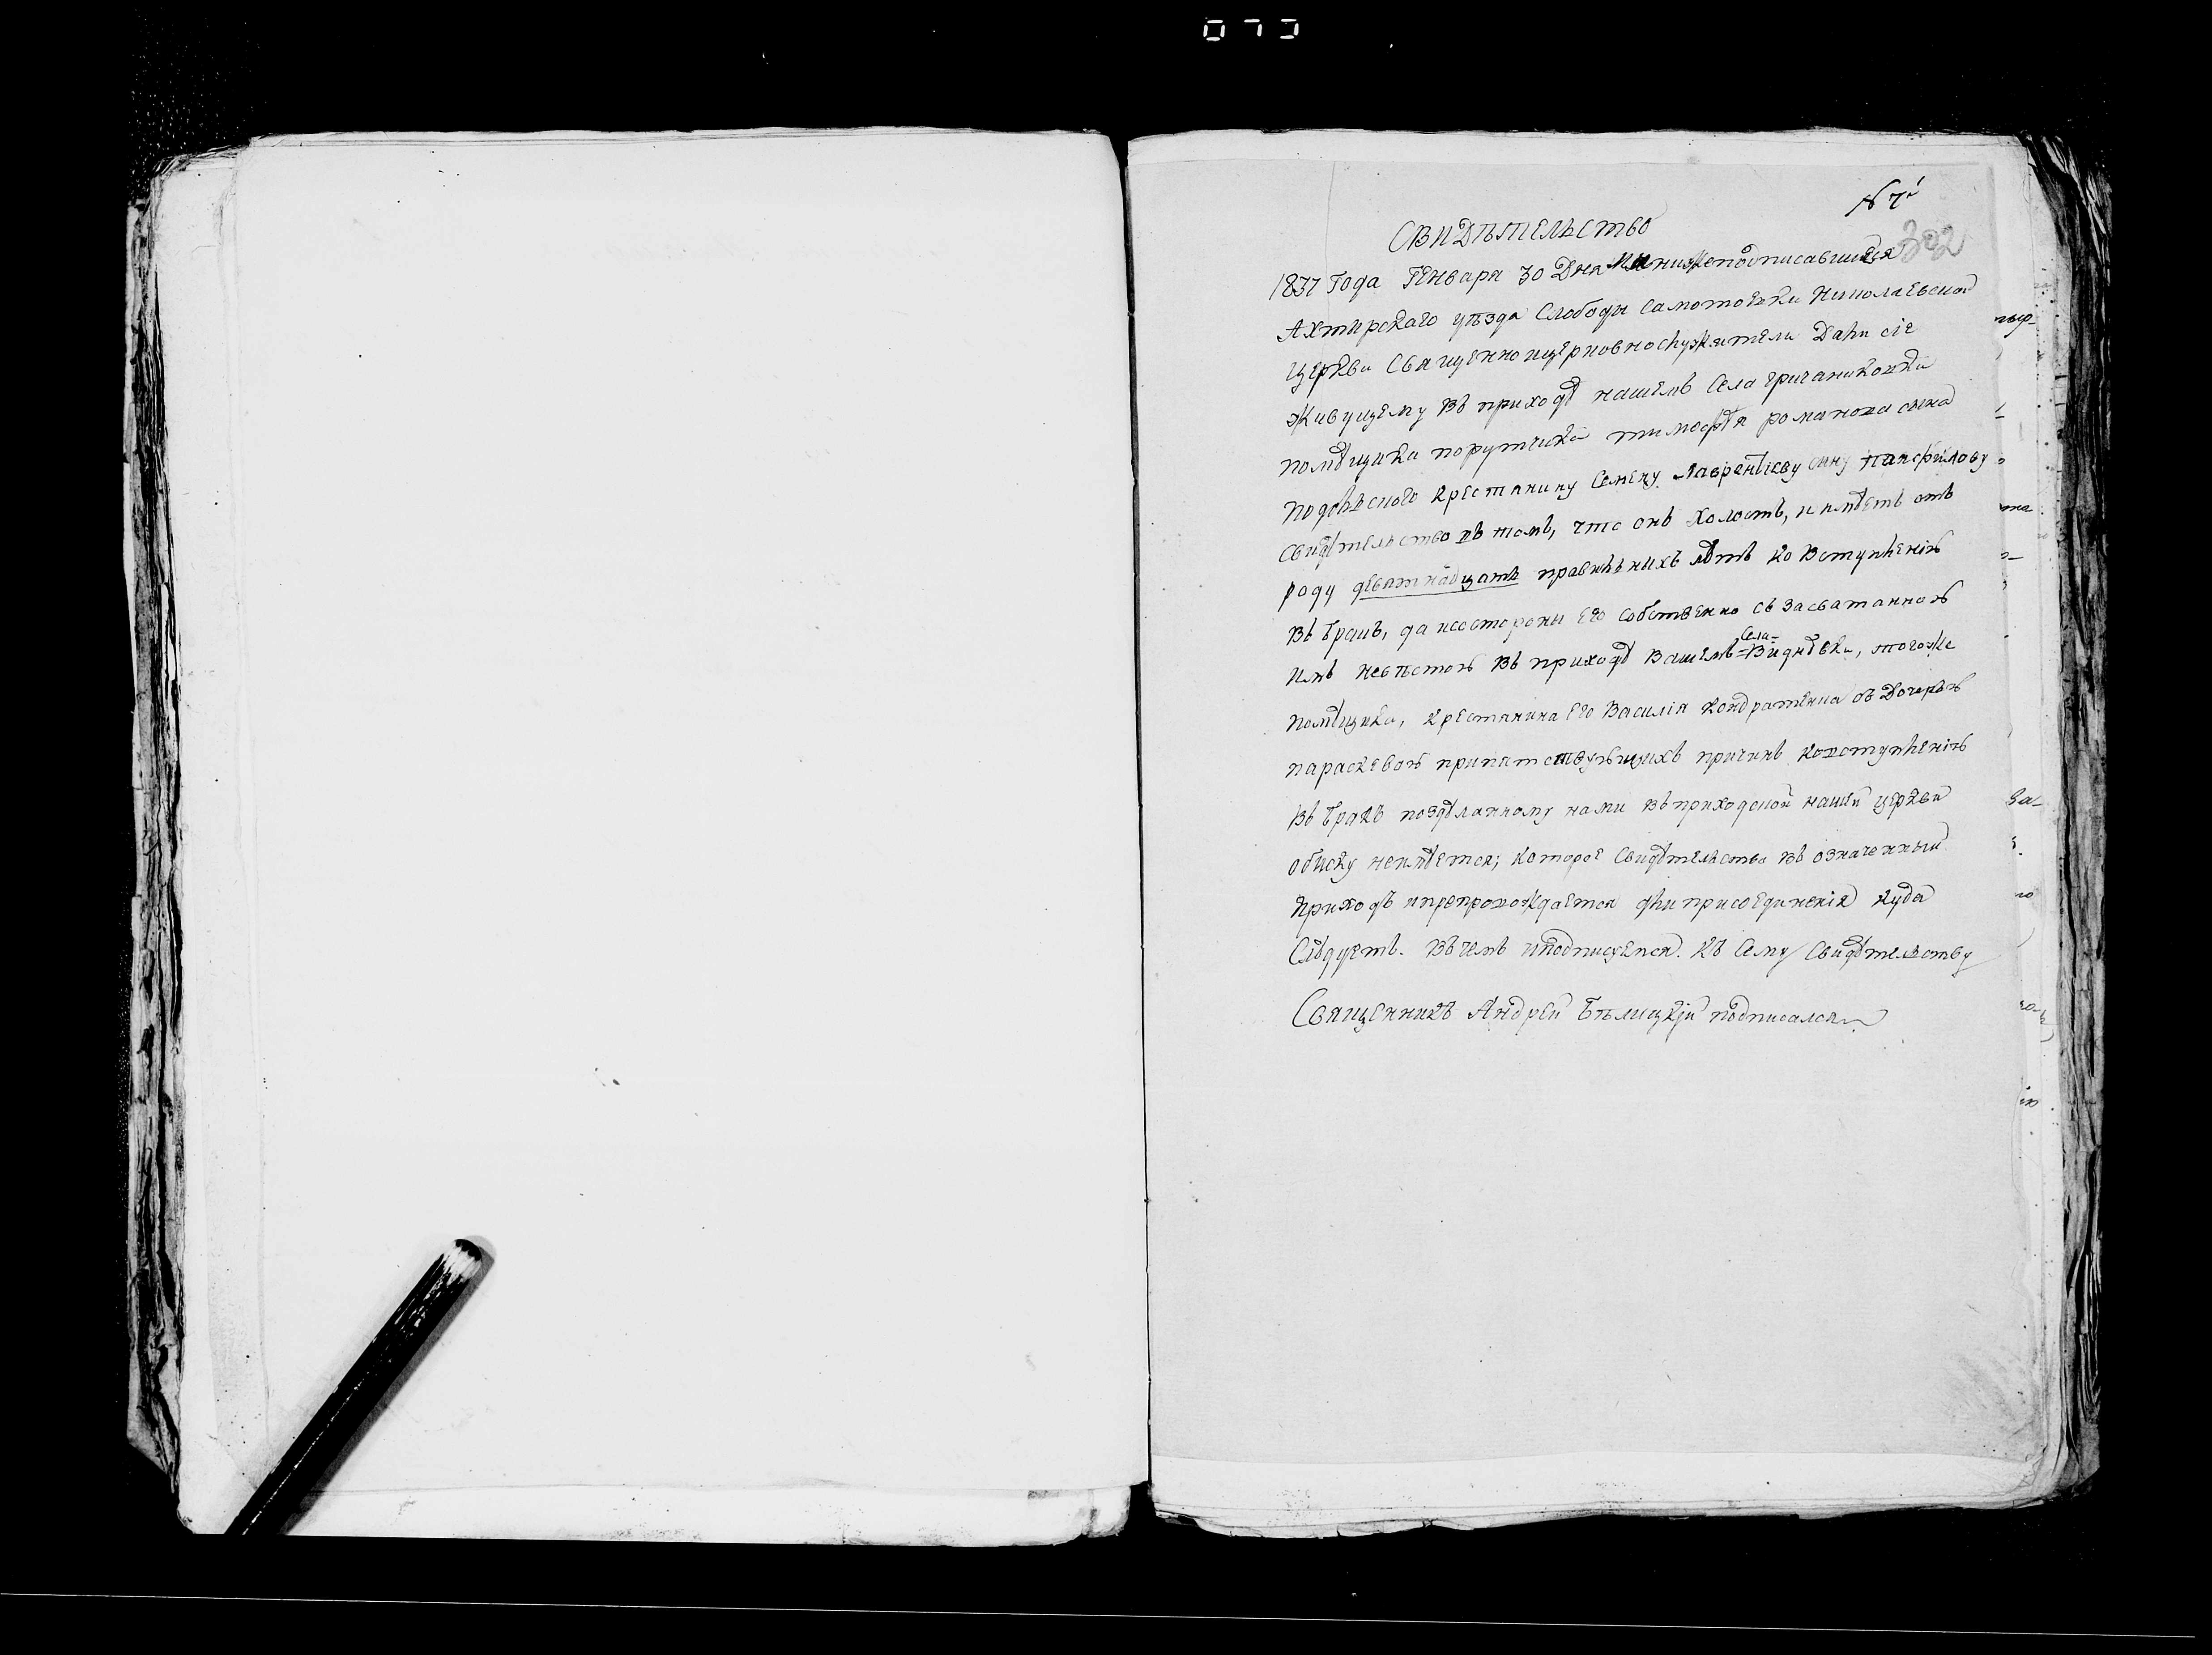 N 7й
302
Свидѣтельство
1837 Года Генваря 30 Дня Мы нижеподписавшыеся
Ахтирскаго уѣзда Слободы Самотоевки Николаевской
Церкви Священноицерковнослужители Дали сіе
живущему въ приходѣ нашемъ Села
помѣщика порутчика тимофѣя романова сына
крестянину Семену Лаврентіеву сину панфилову
свидѣтельство въ томъ, что онъ холостъ, и имѣетъ отъ
роду девятнадцать правилныхъ лѣтъ ко вступленію
въ бракъ, да исостороны Его собственно съ засватанною
имъ невѣстою въ приходѣ вашемъ Села Видновки, тогоже
помѣщика, крестянина Его Василія кондратенка съ Дочерью
параскевою припятствующихъ причинъ ковступленію
въ бракъ поздѣланному нами въ приходской нашей церкви
обиску неимѣется; которое свидѣтельство въ означенный
приходъ ипрепровождается для присоединенія куда
Слѣдуетъ. Въ чемъ иподписуемся. Къ Сему Свидѣтельству
Священникъ Андрей Бѣлицкій подписался